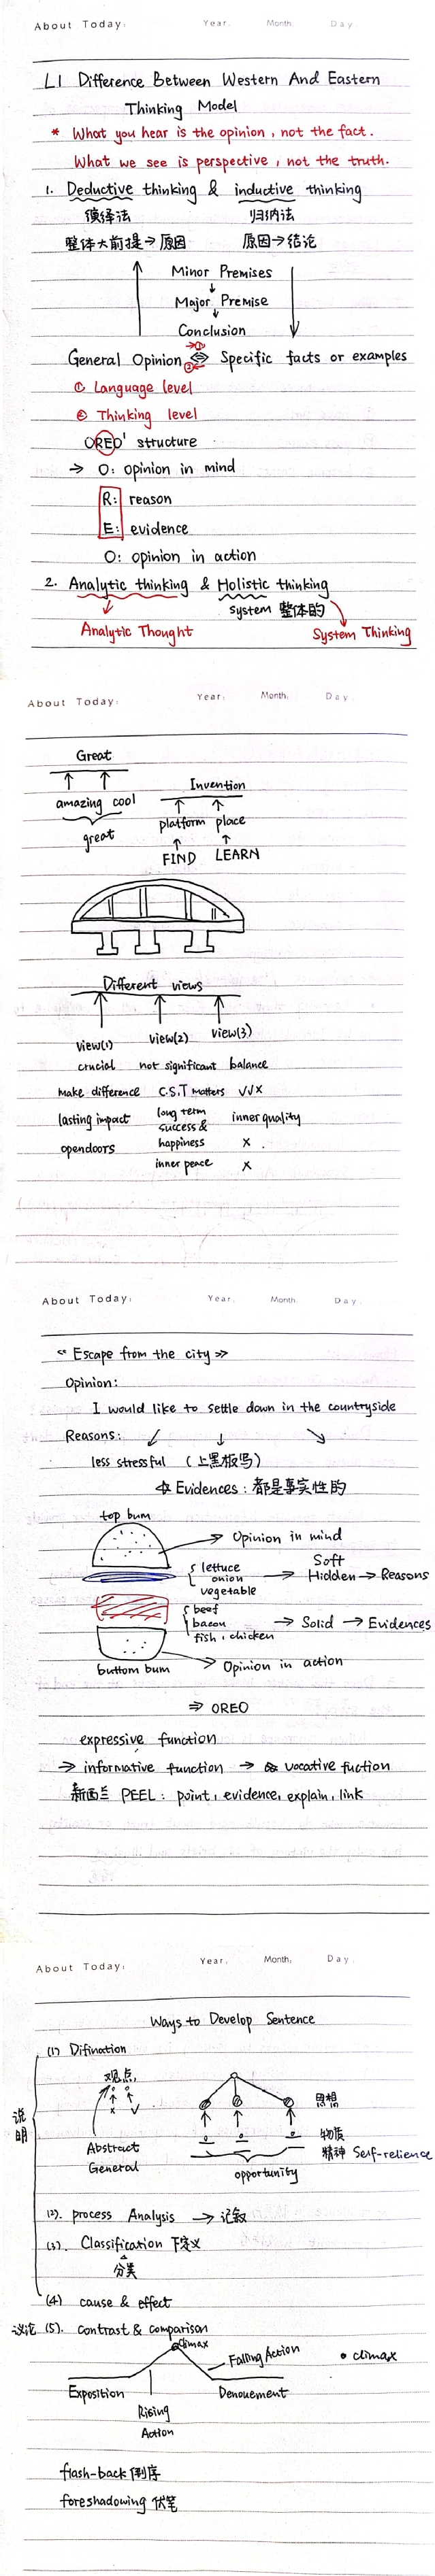 About Today: Year. Month. Day.
L1 Difference Between Western And Eastern
Thinking Model
* What you hear is the opinion, not the fact.
What we see is perspective, not the truth.
1. Deductive thinking & inductive thinking
演绎法 归纳法
整体大前提→原因 原因→结论
Minor Premises
↓
Major Premise
↓
Conclusion
General Opinion ⇔ Specific facts or examples
→①
②←
① Language level
② Thinking level
OREO' structure
→ O: opinion in mind
R: reason
E: evidence
O: opinion in action
2. Analytic thinking & Holistic thinking
system 整体的
Analytic Thought System Thinking
About Today: Year. Month. Day.
Great
amazing cool
great
Invention
platform place
FIND LEARN
Different views
view(1) view(2) view(3)
crucial not significant balance
make difference C.S.T matters √√×
lasting impact long term success & happiness inner quality
opendoors ×
inner peace ×
About Today: Year. Month. Day.
<< Escape from the city >>
Opinion:
I would like to settle down in the countryside
Reasons: ↙ ↓ ↘
less stressful (上黑板写)
→ Evidences: 都是事实性的
top bum
→ Opinion in mind
lettuce
onion
vegetable
→ Soft Hidden → Reasons
beef
bacon
fish, chicken
→ Solid → Evidences
buttom bum → Opinion in action
⇒ OREO
expressive function
→ informative function → vocative fuction
新西兰 PEEL: point, evidence, explain, link
About Today: Year. Month. Day.
Ways to Develop Sentence
说明
(1) Difination
观点
× √
Abstract
General
思想
物质
精神 Self-relience
opportunity
(2). process Analysis → 记叙
(3). Classification 下定义
分类
(4) cause & effect
议论 (5). contrast & comparison
Climax
Falling Action • climax
Exposition Denouement
Rising
Action
flash-back 倒序
foreshadowing 伏笔